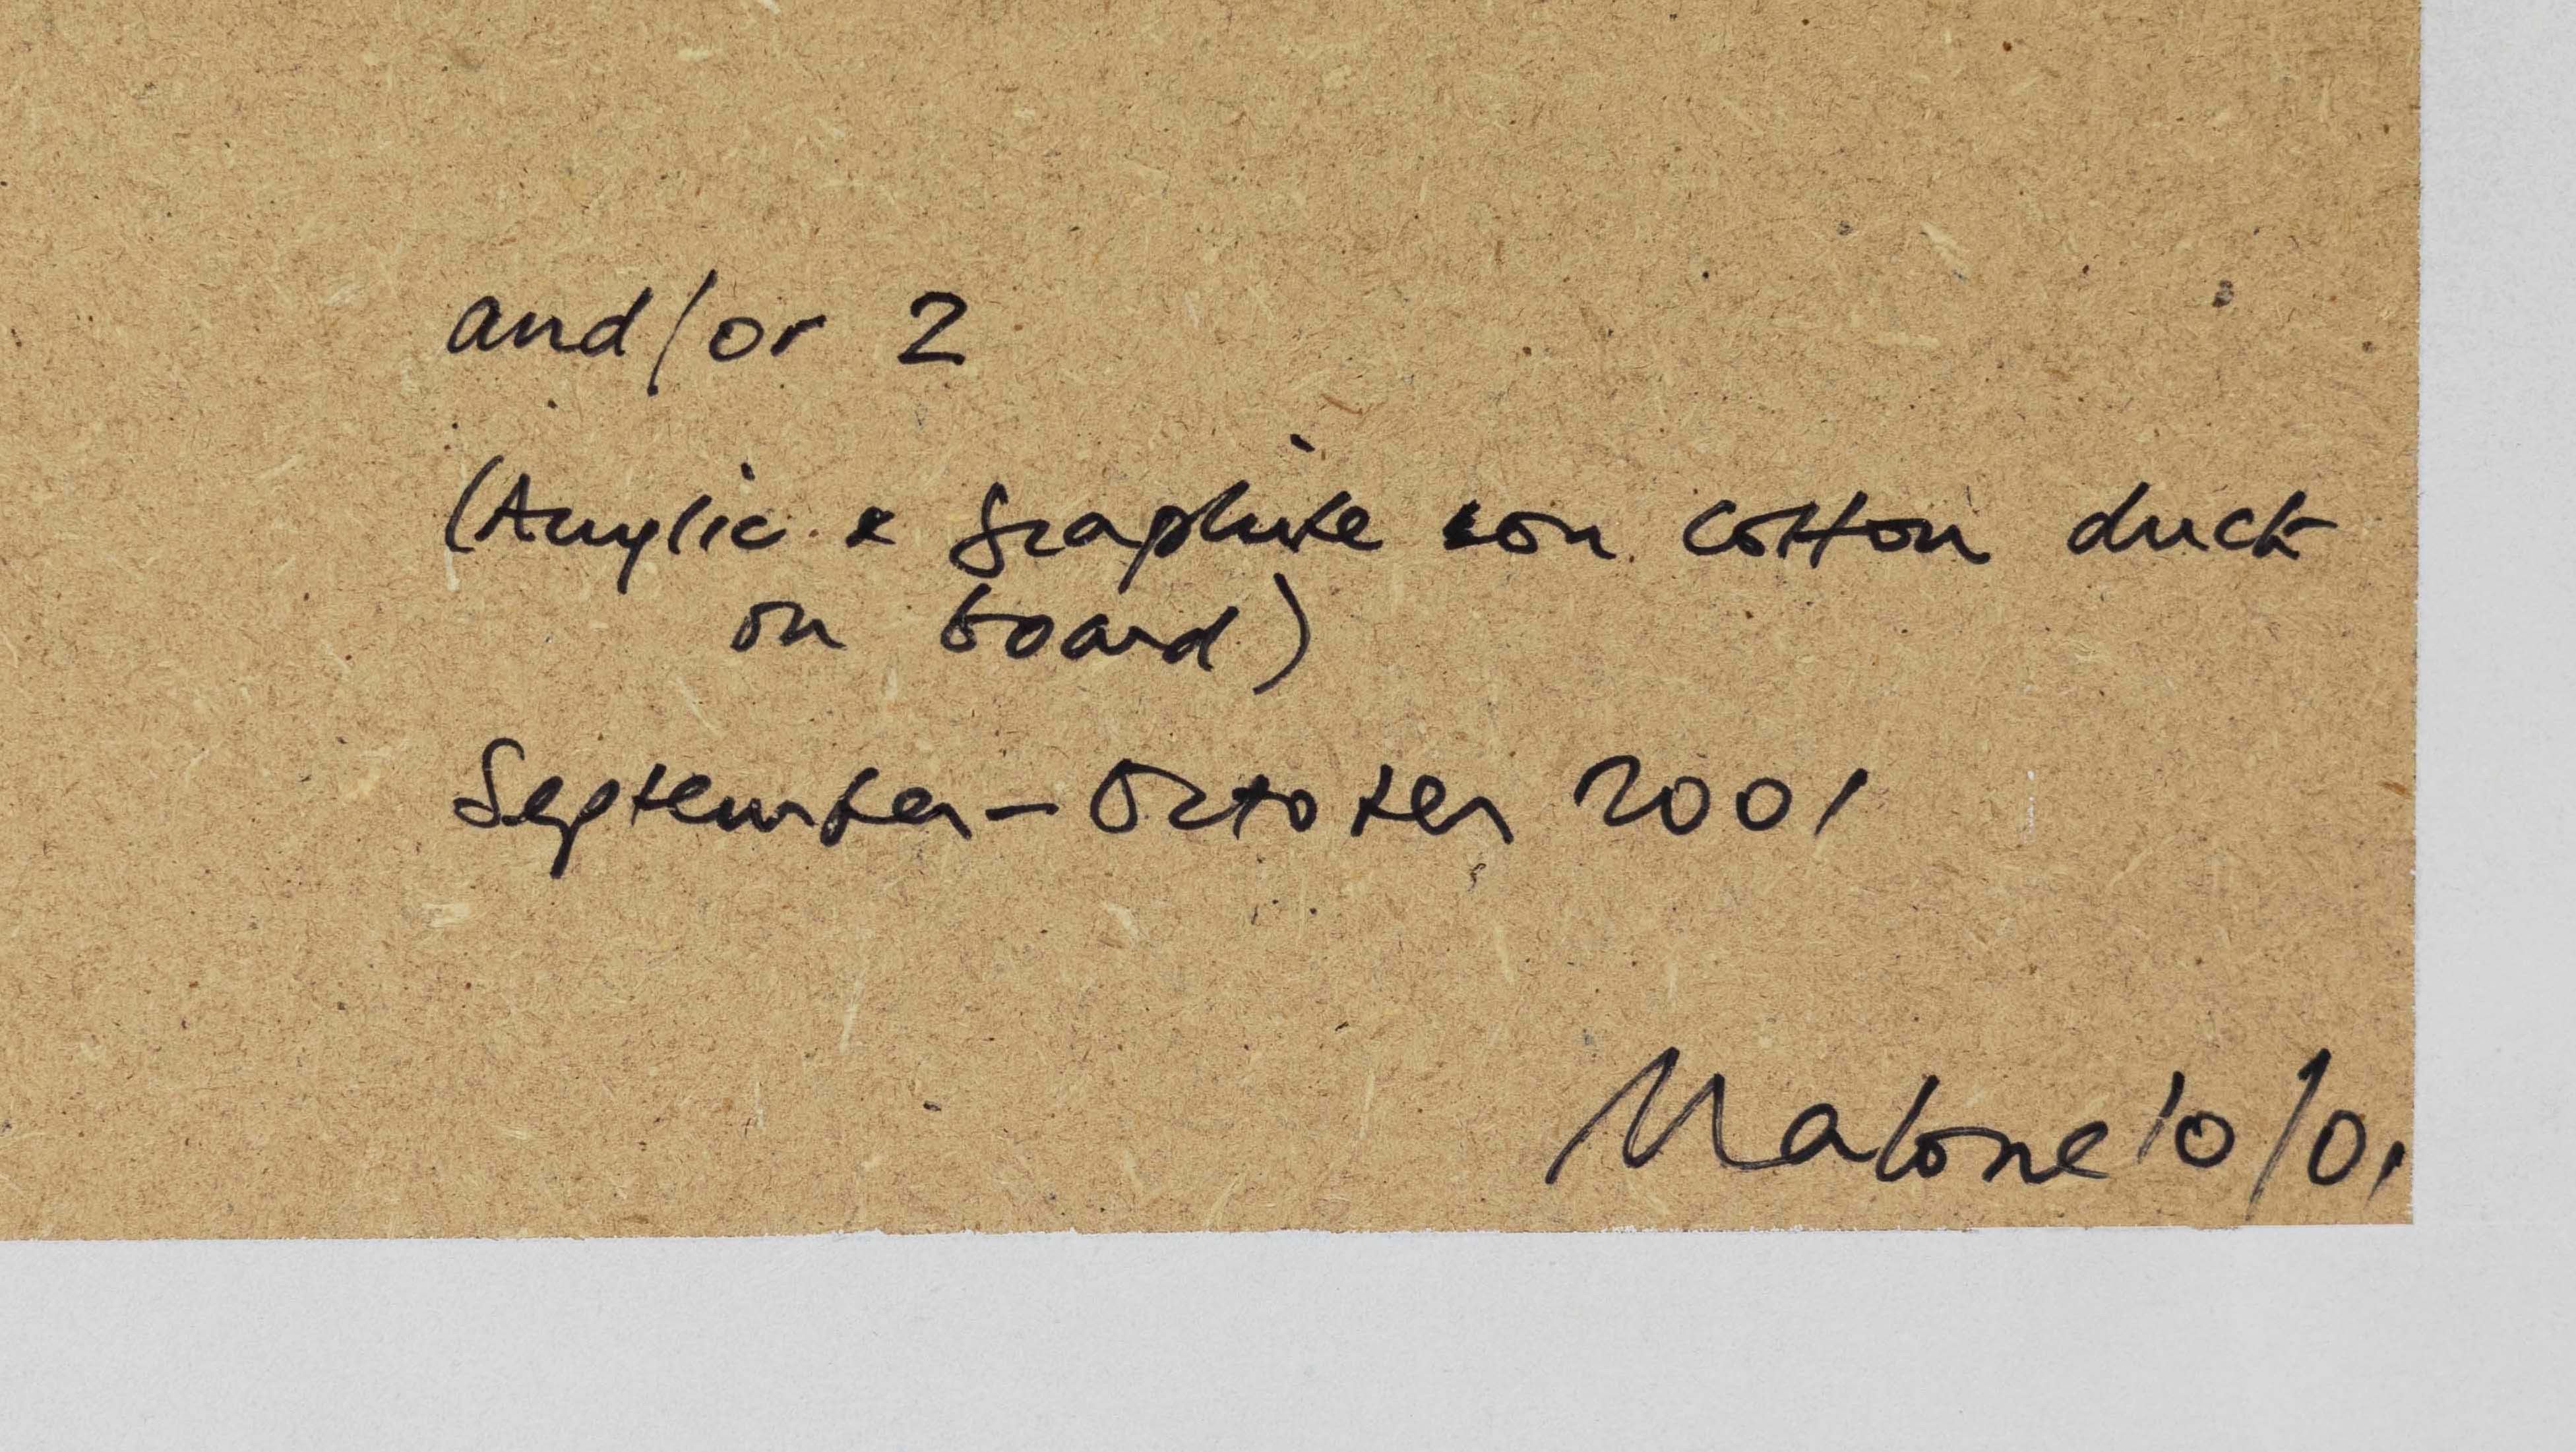 and/or 2
(Acrylic & graphite on cotton duck
on board)
September-October 2001
Malone 10/01